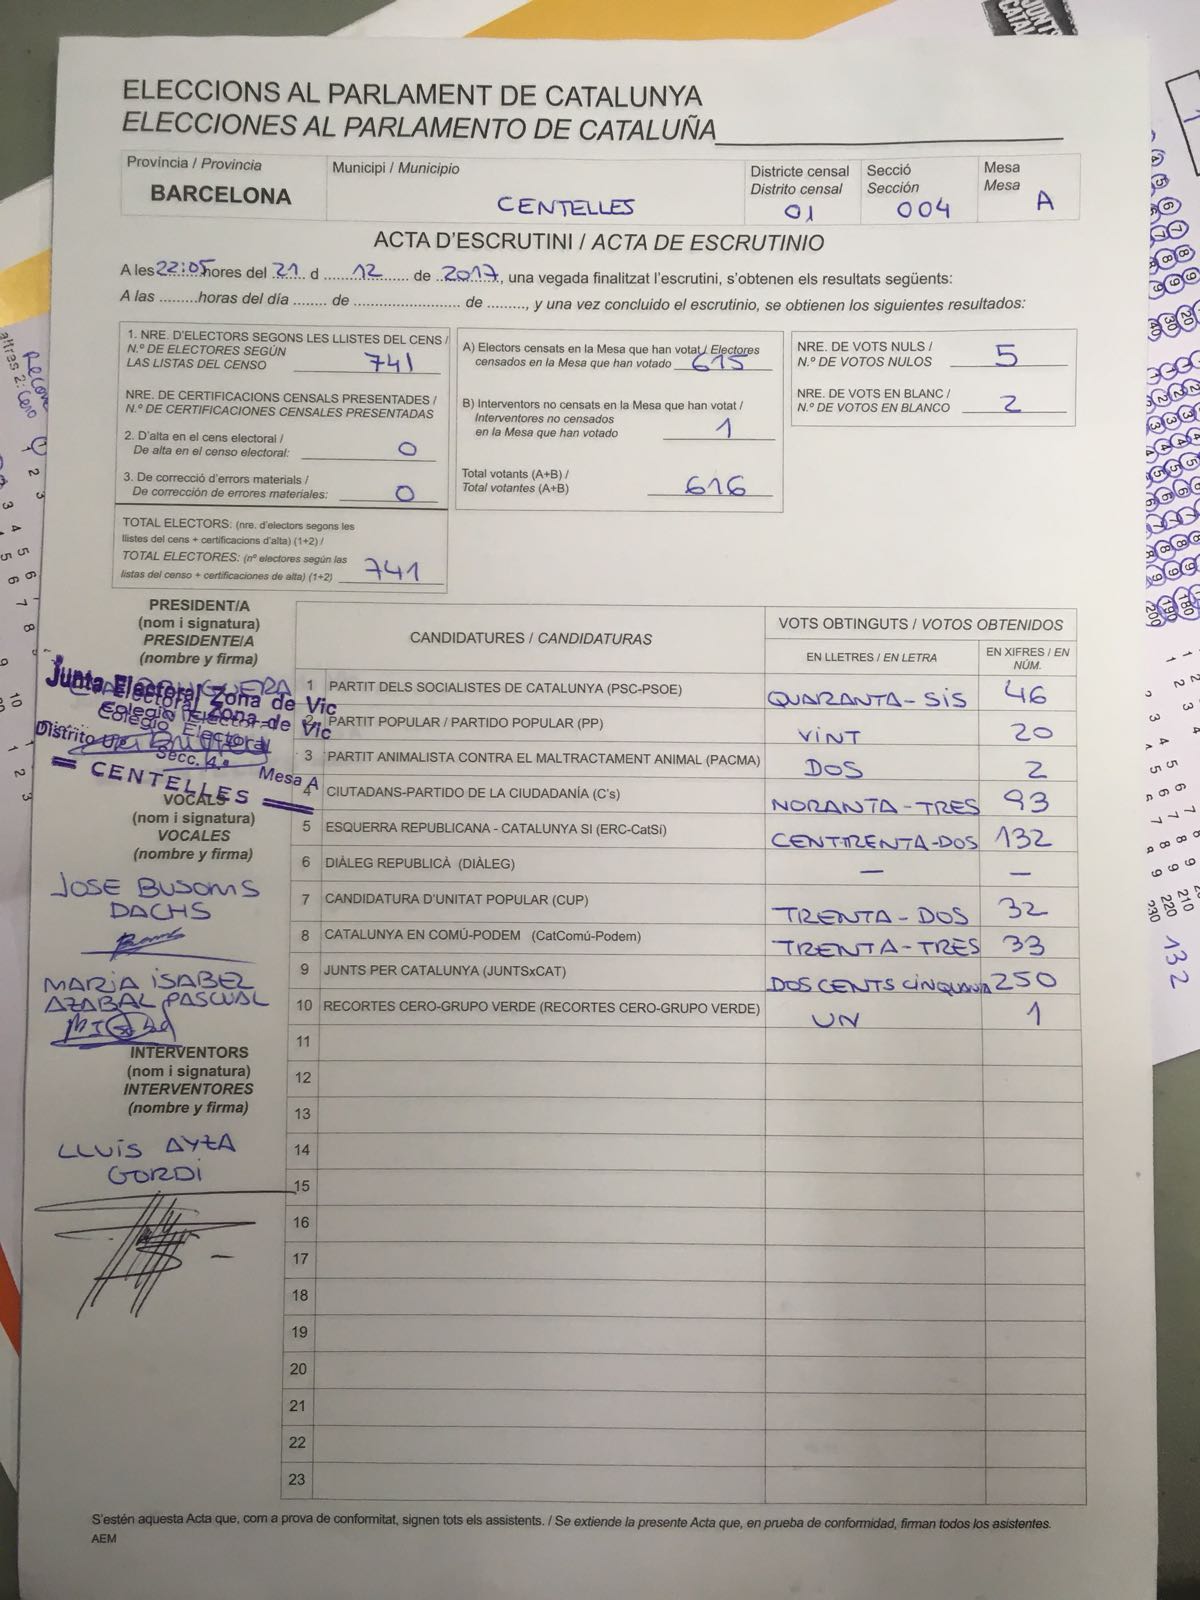 JUNTS
CATAL
ELECCIONS AL PARLAMENT DE CATALUNYA
ELECCIONES AL PARLAMENTO DE CATALUÑA
Província / Provincia
BARCELONA
Municipi / Municipio
CENTELLES
Districte censal
Distrito censal
01
Secció
Sección
004
Mesa
Mesa
A
ACTA D'ESCRUTINI / ACTA DE ESCRUTINIO
A les 22:05 hores del 21 d 12 de 2017, una vegada finalitzat l'escrutini, s'obtenen els resultats següents:
A las .........horas del día ....... de ...................... de ........, y una vez concluido el escrutinio, se obtienen los siguientes resultados:
1. NRE. D'ELECTORS SEGONS LES LLISTES DEL CENS /
N.º DE ELECTORES SEGÚN
LAS LISTAS DEL CENSO 741
NRE. DE CERTIFICACIONS CENSALS PRESENTADES /
N.º DE CERTIFICACIONES CENSALES PRESENTADAS
2. D'alta en el cens electoral /
De alta en el censo electoral: 0
3. De correcció d'errors materials /
De corrección de errores materiales: 0
TOTAL ELECTORS: (nre. d'electors segons les
llistes del cens + certificacions d'alta) (1+2) /
TOTAL ELECTORES: (nº electores según las
listas del censo + certificaciones de alta) (1+2) 741
A) Electors censats en la Mesa que han votat / Electores
censados en la Mesa que han votado 615
B) Interventors no censats en la Mesa que han votat /
Interventores no censados
en la Mesa que han votado 1
Total votants (A+B) /
Total votantes (A+B) 616
NRE. DE VOTS NULS /
N.º DE VOTOS NULOS 5
NRE. DE VOTS EN BLANC /
N.º DE VOTOS EN BLANCO 2
PRESIDENT/A
(nom i signatura)
PRESIDENTE/A
(nombre y firma)
Junta Electoral Zona de Vic
Colegio Electoral
Secc. 4.ª
Mesa A
CENTELLES
VOCALS
(nom i signatura)
VOCALES
(nombre y firma)
JOSE BUSOMS
DACHS
MARIA ISABEL
AZABAL PASCUAL
INTERVENTORS
(nom i signatura)
INTERVENTORES
(nombre y firma)
LLUÍS AYZA
GORDI
CANDIDATURES / CANDIDATURAS
VOTS OBTINGUTS / VOTOS OBTENIDOS
EN LLETRES / EN LETRA
EN XIFRES / EN NÚM.
1 PARTIT DELS SOCIALISTES DE CATALUNYA (PSC-PSOE) QUARANTA-SIS 46
2 PARTIT POPULAR / PARTIDO POPULAR (PP) VINT 20
3 PARTIT ANIMALISTA CONTRA EL MALTRACTAMENT ANIMAL (PACMA) DOS 2
4 CIUTADANS-PARTIDO DE LA CIUDADANÍA (C's) NORANTA-TRES 93
5 ESQUERRA REPUBLICANA - CATALUNYA SÍ (ERC-CatSí) CENTTRENTA-DOS 132
6 DIÀLEG REPUBLICÀ (DIÀLEG) — —
7 CANDIDATURA D'UNITAT POPULAR (CUP) TRENTA-DOS 32
8 CATALUNYA EN COMÚ-PODEM (CatComú-Podem) TRENTA-TRES 33
9 JUNTS PER CATALUNYA (JUNTSxCAT) DOS CENTS CINQUANTA 250
10 RECORTES CERO-GRUPO VERDE (RECORTES CERO-GRUPO VERDE) UN 1
11
12
13
14
15
16
17
18
19
20
21
22
23
S'estén aquesta Acta que, com a prova de conformitat, signen tots els assistents. / Se extiende la presente Acta que, en prueba de conformidad, firman todos los asistentes.
AEM
132